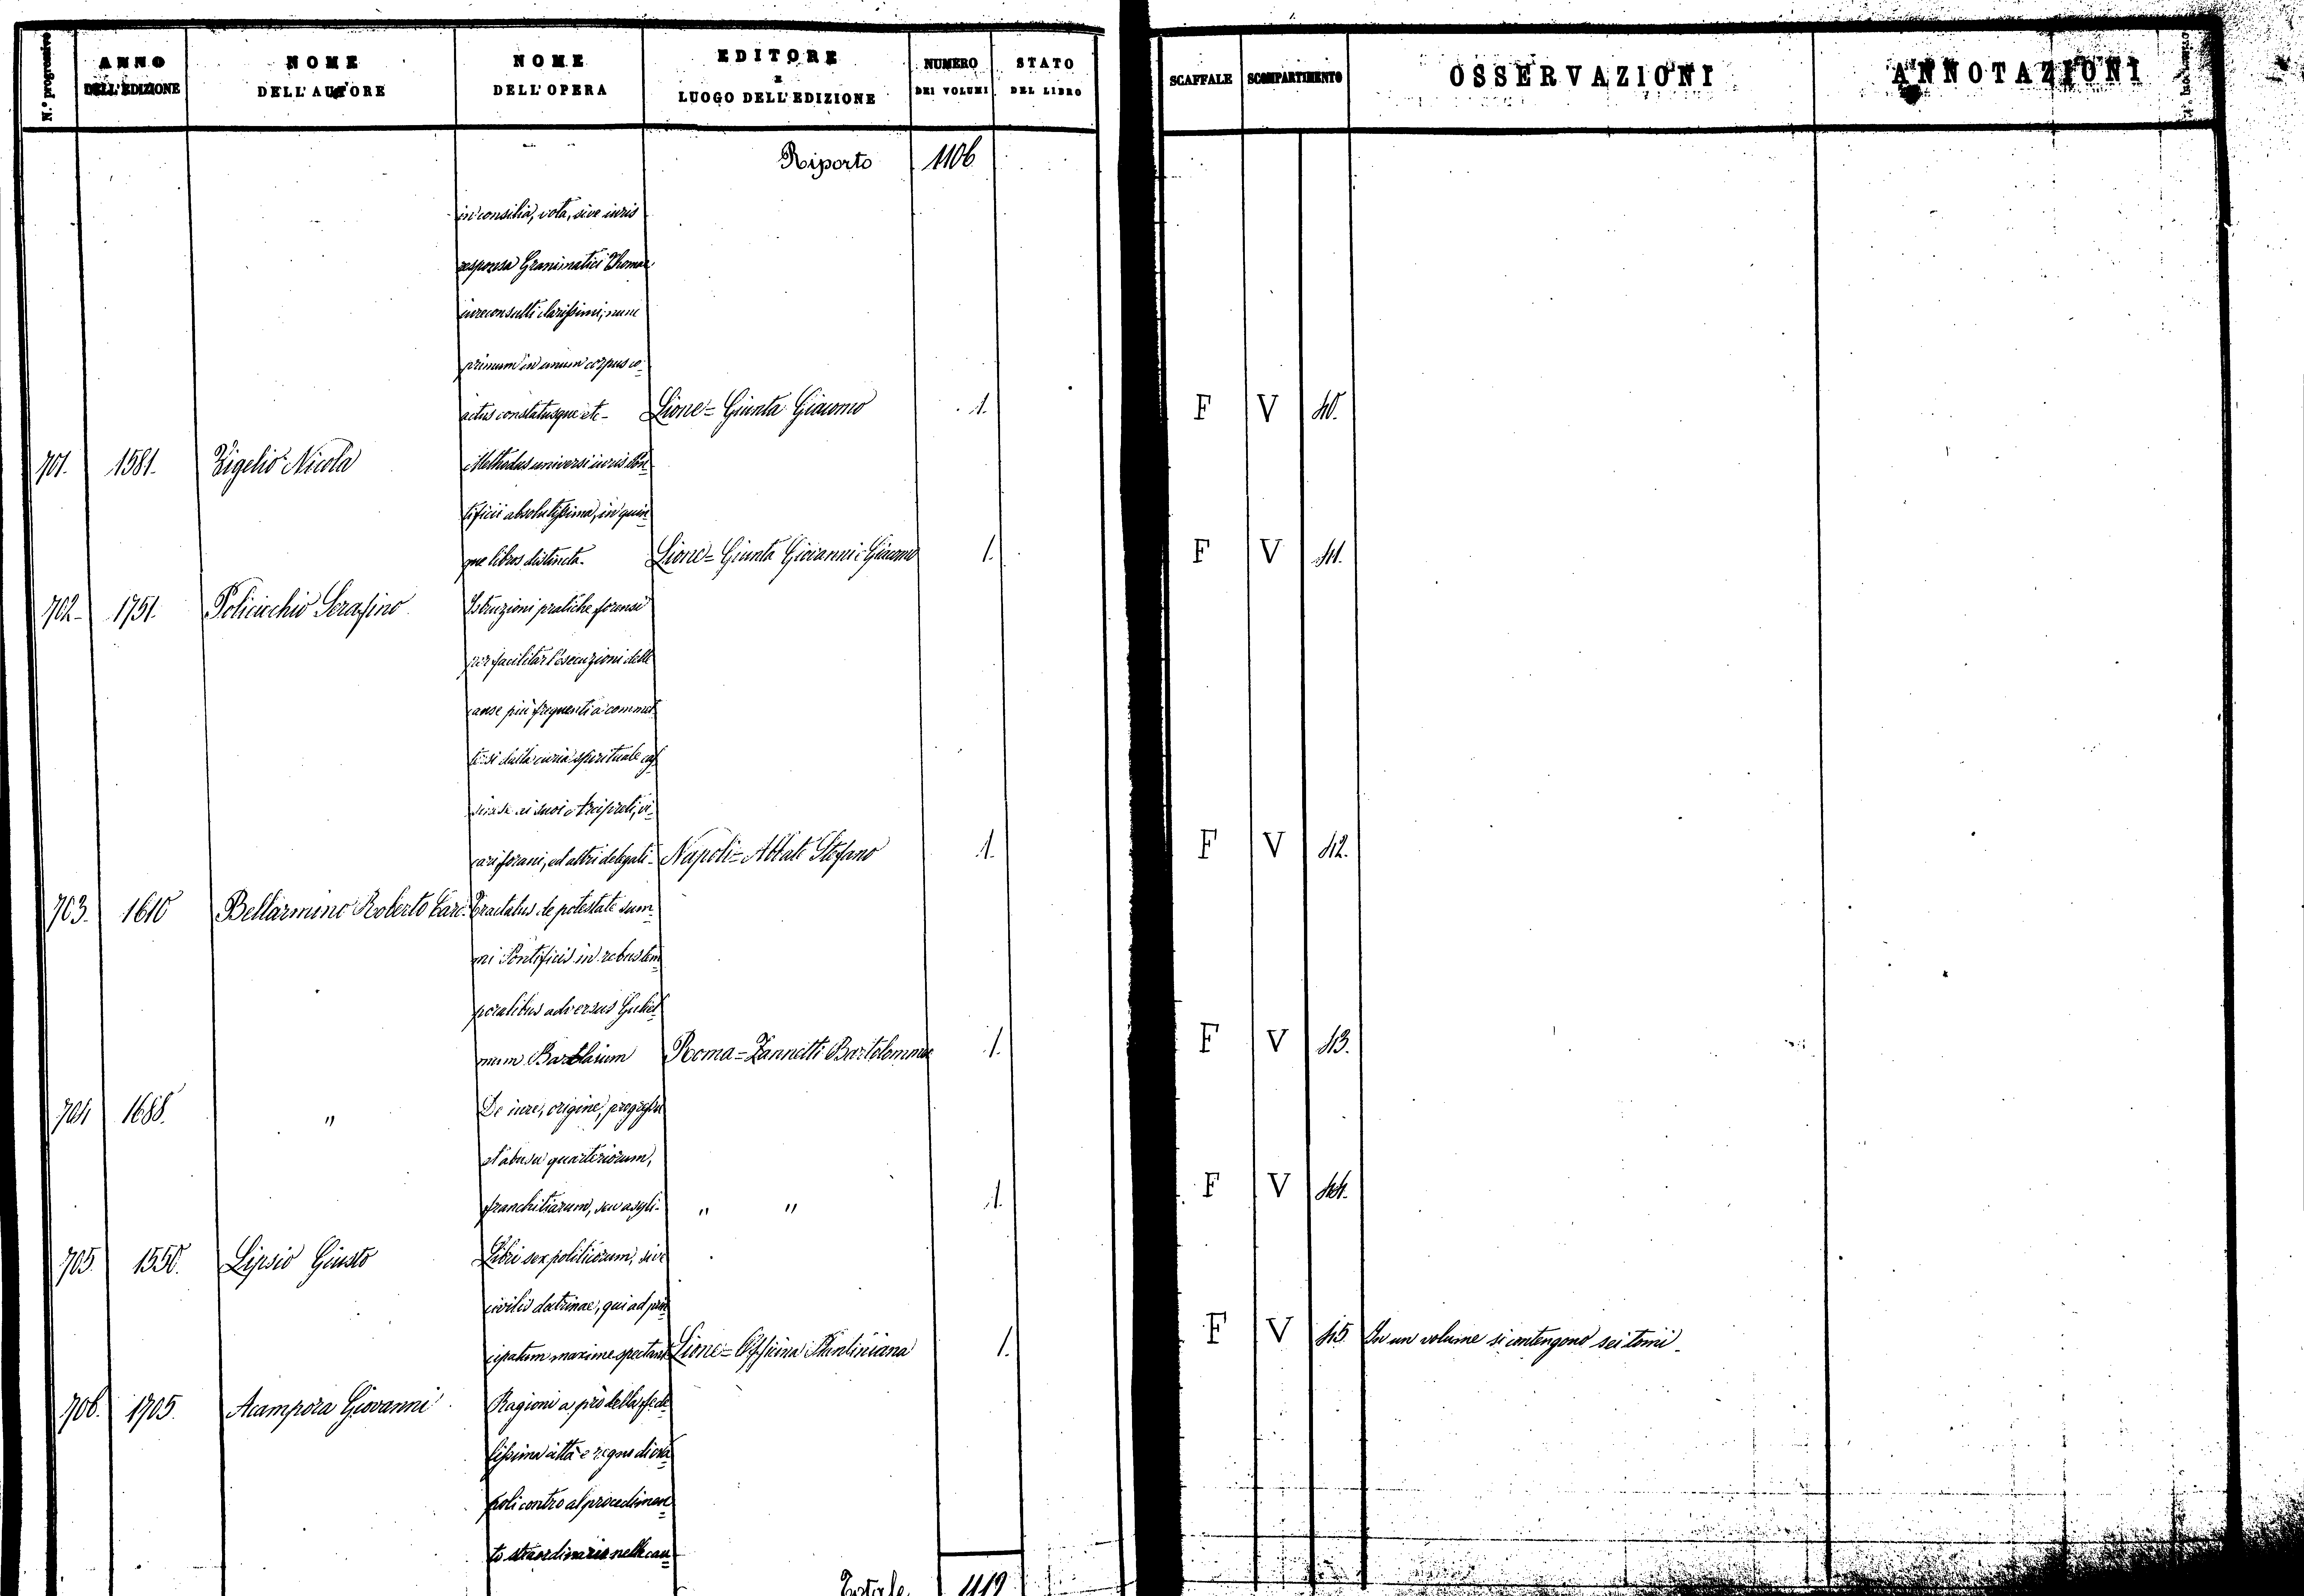 N.º progressivo
ANNO DELL'EDIZIONE
NOME DELL'AUTORE
NOME DELL'OPERA
EDITORE E LUOGO DELL'EDIZIONE
NUMERO DEI VOLUMI
STATO DEL LIBRO
SCAFFALE
SCOMPARTIMENTO
OSSERVAZIONI
ANNOTAZIONI
Riporto 1106
in consilia, vota, sive iuris
responsa Grammatici Thomae
iureconsulti clarissimi, nunc
primum in unum corpus co-
actus constatusque etc- Lione= Giunta Giacomo 1. F V 40.
701. 1581. Vigelio Nicola Methodus universi iuris Pon-
tificii absolutissima, in quin-
que libros distincta. Lione= Giunta Giovanni-Giacomo 1. F V 41.
702- 1751. Policicchio Serafino Istruzioni pratiche forensi
per facilitar l'esecuzioni delle
cause più frequenti a commet-
te-si dalla curia spirituale
ai suoi vi-
cari forani, ed altri delegati- Napoli= Abbate Stefano 1. F V 42.
703. 1610 Bellarmino Roberto Card. Tractatus de potestate sum-
mi Pontificis in rebus tem-
poralibus adversus Guliel-
mum Barclaium Roma= Zannetti Bartolommeo 1. F V 43.
704 1688. " De iure, origine, progressu
et abusu quarteriorum,
franchitiarum, seu asyli- " " 1. F V 44.
705. 1550. Lipsio Giusto Libri sex politicorum, sive
civilis doctrinae, qui ad prin-
cipatum maxime spectant Lione= Officina Plantiniana 1. F V 45 In un volume si contengono sei tomi-
706. 1705. Acampora Giovanni Ragioni a prò della fede-
lissima città e regno di Na-
poli contro al procedimen-
to straordinario nelle cau-
Totale 1112